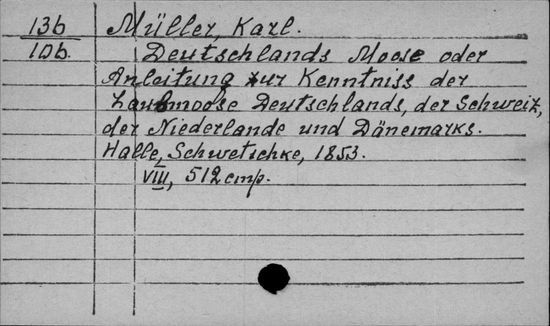 13б Müller, Karl.
10б. Deutschlands Moose oder
Anleitung zur Kenntniss der
Laubmoose Deutschlands, der Schweiz,
der Niederlande und Dänemarks.
Halle, Schwetschke, 1853.
VIII, 512 стр.